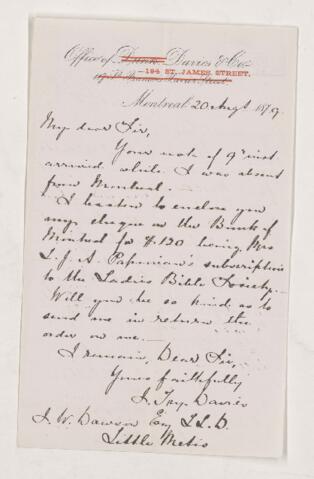 Office of Davies & Co.
194 ST. JAMES STREET.
Montreal 20 Augt 1879.
My dear Sir,
Your note of 9th inst
arrived while I was absent
from Montreal.
I hasten to enclose you
my cheque on the Bank of
Montreal for $130 being Mrs
L. J. A. Papineau's subscription
to the Ladies Bible Society.
Will you be so kind as to
send me in return the
order on me.
I remain, Dear Sir,
Yours faithfully
Davies
J. W. Dawson Esq LL.D.
Little Metis